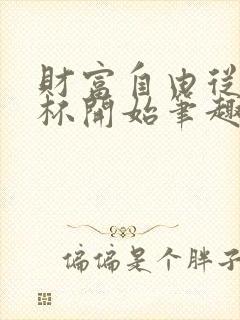 財富自由從
杯開始筆趣
偏偏是个胖子